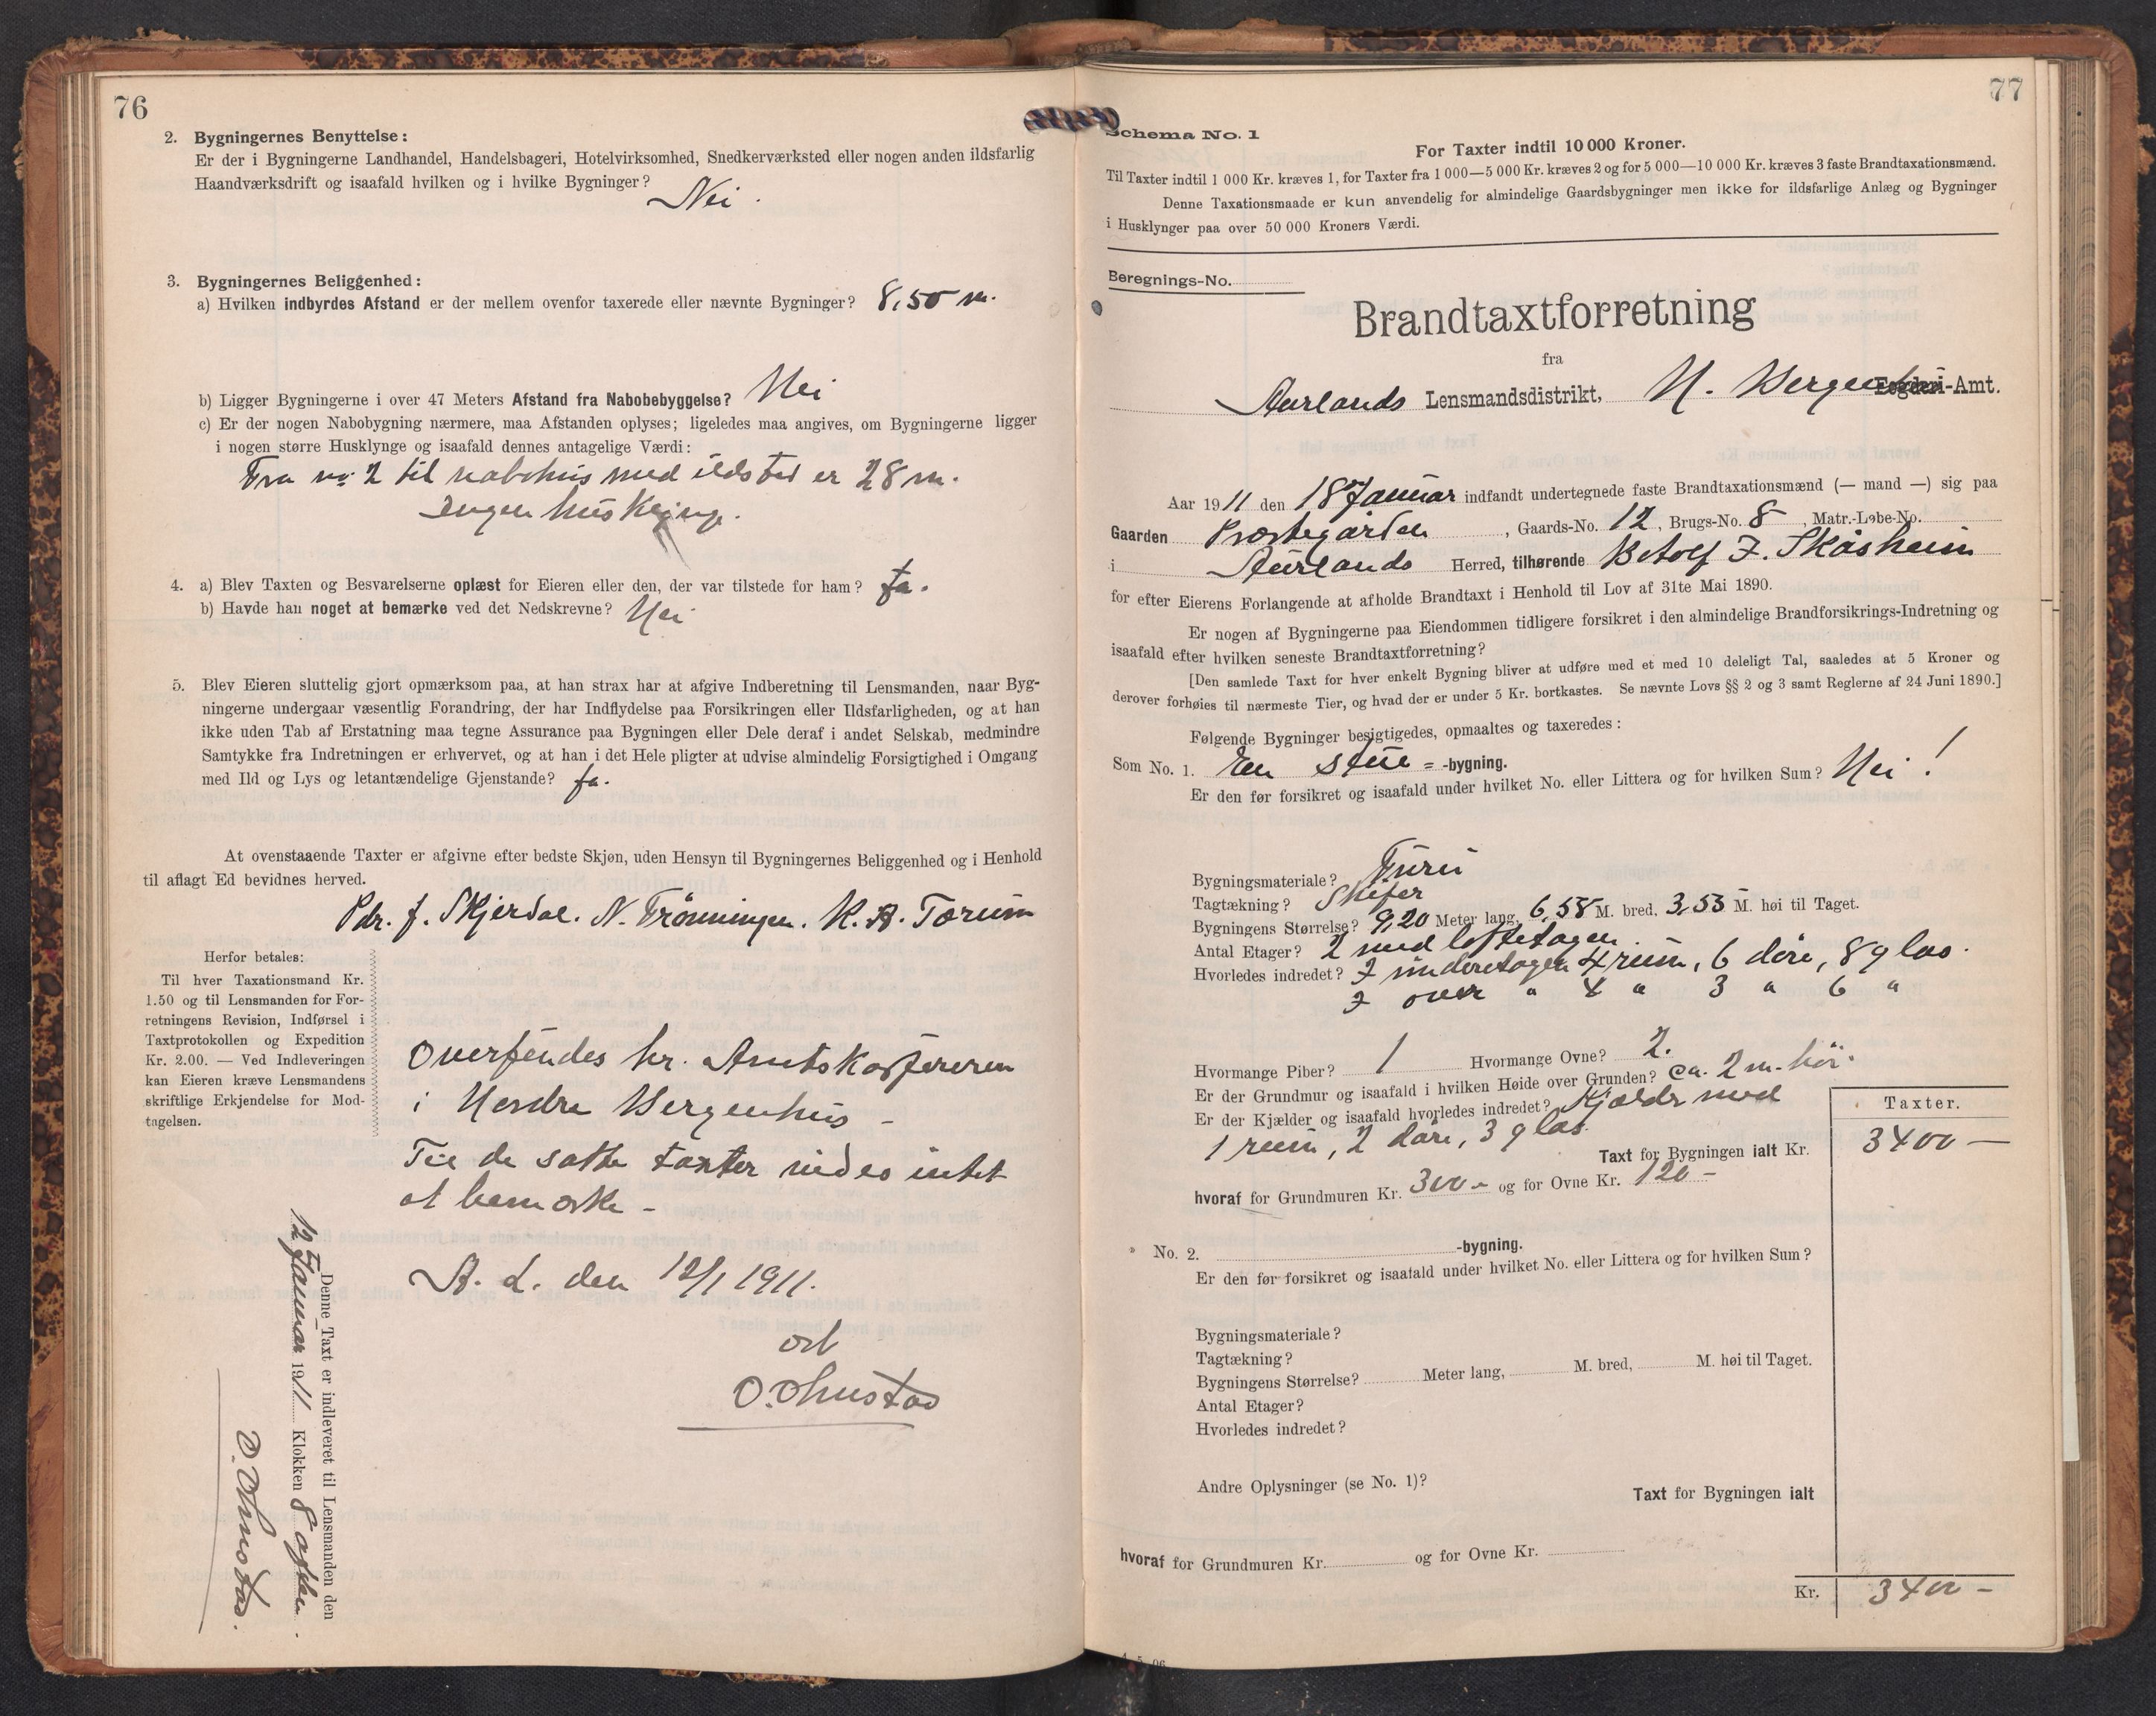 76
2. Bygningernes Benyttelse:
Er der i Bygningerne Landhandel, Handelsbageri, Hotelvirksomhed, Snedkerværksted eller nogen anden ildsfarlig
Haandværksdrift og isaafald hvilken og i hvilke Bygninger?
Nei.
3. Bygningernes Beliggenhed:
a) Hvilken indbyrdes Afstand er der mellem ovenfor taxerede eller nævnte Bygninger? 8,50 m.
b) Ligger Bygningerne i over 47 Meters Afstand fra Nabobebyggelse? Nei
c) Er der nogen Nabobygning nærmere, maa Afstanden oplyses; ligeledes maa angives, om Bygningerne ligger
i nogen større Husklynge og isaafald dennes antagelige Værdi:
Fra no 2 til nabohus med ildsted er 28 m.
Ingen husklynge.
4. a) Blev Taxten og Besvarelserne oplæst for Eieren eller den, der var tilstede for ham? Ja.
b) Havde han noget at bemærke ved det Nedskrevne? Nei
5. Blev Eieren sluttelig gjort opmærksom paa, at han strax har at afgive Indberetning til Lensmanden, naar Byg-
ningerne undergaar væsentlig Forandring, der har Indflydelse paa Forsikringen eller Ildsfarligheden, og at han
ikke uden Tab af Erstatning maa tegne Assurance paa Bygningen eller Dele deraf i andet Selskab, medmindre
Samtykke fra Indretningen er erhvervet, og at han i det Hele pligter at udvise almindelig Forsigtighed i Omgang
med Ild og Lys og letantændelige Gjenstande? Ja.
At ovenstaaende Taxter er afgivne efter bedste Skjøn, uden Hensyn til Bygningernes Beliggenhed og i Henhold
til aflagt Ed bevidnes herved.
Pdr. J. Skjerdal. N. Frønningen. K. A. Tørum
Herfor betales:
Til hver Taxationsmand Kr.
1.50 og til Lensmanden for For-
retningens Revision, Indførsel i
Taxtprotokollen og Expedition
Kr. 2.00. — Ved Indleveringen
kan Eieren kræve Lensmandens
skriftlige Erkjendelse for Mod-
tagelsen.
Oversendes hr. Amtskassereren
i Nordre Bergenhus -
Til de satte taxter vides intet
at bemærke -
A. L. den 12/1 1911.
O. Ohnstad
Denne Taxt er indleveret til Lensmanden den
12 Januar 1911 Klokken 8 aften.
O. Ohnstad.
77
Schema No. 1
For Taxter indtil 10 000 Kroner.
Til Taxter indtil 1 000 Kr. kræves 1, for Taxter fra 1 000—5 000 Kr. kræves 2 og for 5 000—10 000 Kr. kræves 3 faste Brandtaxationsmænd.
Denne Taxationsmaade er kun anvendelig for almindelige Gaardsbygninger men ikke for ildsfarlige Anlæg og Bygninger
i Husklynger paa over 50 000 Kroners Værdi.
Beregnings-No.
Brandtaxtforretning
fra
Aurlands Lensmandsdistrikt, N. Bergenhus Fogderi-Amt.
Aar 1911 den 18 Januar indfandt undertegnede faste Brandtaxationsmænd (— mand —) sig paa
Gaarden Prestegården, Gaards-No. 12, Brugs-No. 8, Matr.-Løbe-No.
i Aurlands Herred, tilhørende Botolf J. Skåsheim
for efter Eierens Forlangende at afholde Brandtaxt i Henhold til Lov af 31te Mai 1890.
Er nogen af Bygningerne paa Eiendommen tidligere forsikret i den almindelige Brandforsikrings-Indretning og
isaafald efter hvilken seneste Brandtaxtforretning?
[Den samlede Taxt for hver enkelt Bygning bliver at udføre med et med 10 deleligt Tal, saaledes at 5 Kroner og
derover forhøies til nærmeste Tier, og hvad der er under 5 Kr. bortkastes. Se nævnte Lovs §§ 2 og 3 samt Reglerne af 24 Juni 1890.]
Følgende Bygninger besigtigedes, opmaaltes og taxeredes:
Som No. 1. En stue = -bygning.
Er den før forsikret og isaafald under hvilket No. eller Littera og for hvilken Sum? Nei!
Bygningsmateriale? Furu
Tagtækning? Skifer
Bygningens Størrelse? 9,20 Meter lang, 6,58 M. bred, 3,53 M. høi til Taget.
Antal Etager? 2 med loftetagen.
Hvorledes indredet? I underetagen 4 rum, 6 døre, 8 glas.
I over " 4 " 3 " 6 "
Hvormange Piber? 1 Hvormange Ovne? 2.
Er der Grundmur og isaafald i hvilken Høide over Grunden? Ca. 2 m. høi.
Er der Kjælder og isaafald hvorledes indredet? Kjælder med
1 rum, 2 døre, 3 glas.
Taxter.
Taxt for Bygningen ialt Kr. 3400 —
hvoraf for Grundmuren Kr. 300 - og for Ovne Kr. 120 -
No. 2. -bygning.
Er den før forsikret og isaafald under hvilket No. eller Littera og for hvilken Sum?
Bygningsmateriale?
Tagtækning?
Bygningens Størrelse? Meter lang, M. bred, M. høi til Taget.
Antal Etager?
Hvorledes indredet?
Andre Oplysninger (se No. 1)?
Taxt for Bygningen ialt
hvoraf for Grundmuren Kr. og for Ovne Kr.
Kr. 3400 -